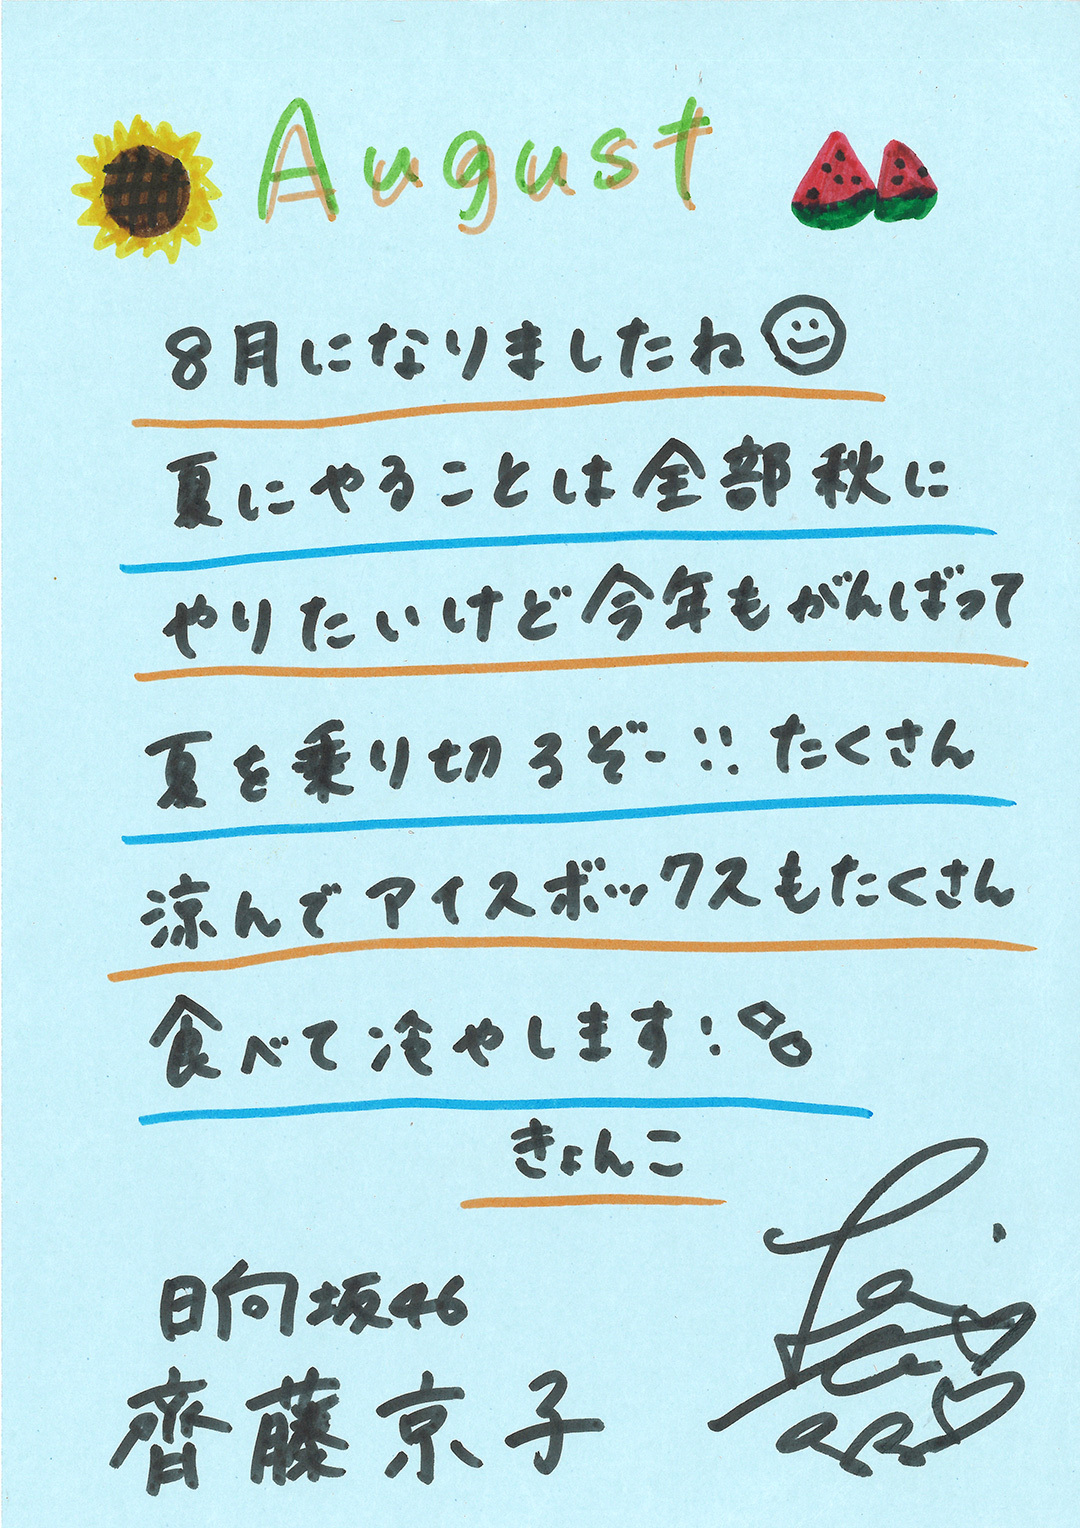 August
8月になりましたね
夏にやることは全部秋に
やりたいけど今年もがんばって
夏を乗り切るぞー!! たくさん
涼んでアイスボックスもたくさん
食べて冷やします!
きょんこ
日向坂46
齊藤京子